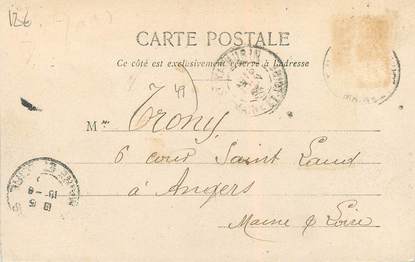 12€
CARTE POSTALE
Ce côté est exclusivement réservé à l'adresse
49
M Trony
6 cour Saint Laud
à Angers
Maine & Loire
MAINE ET
15 - 8
5